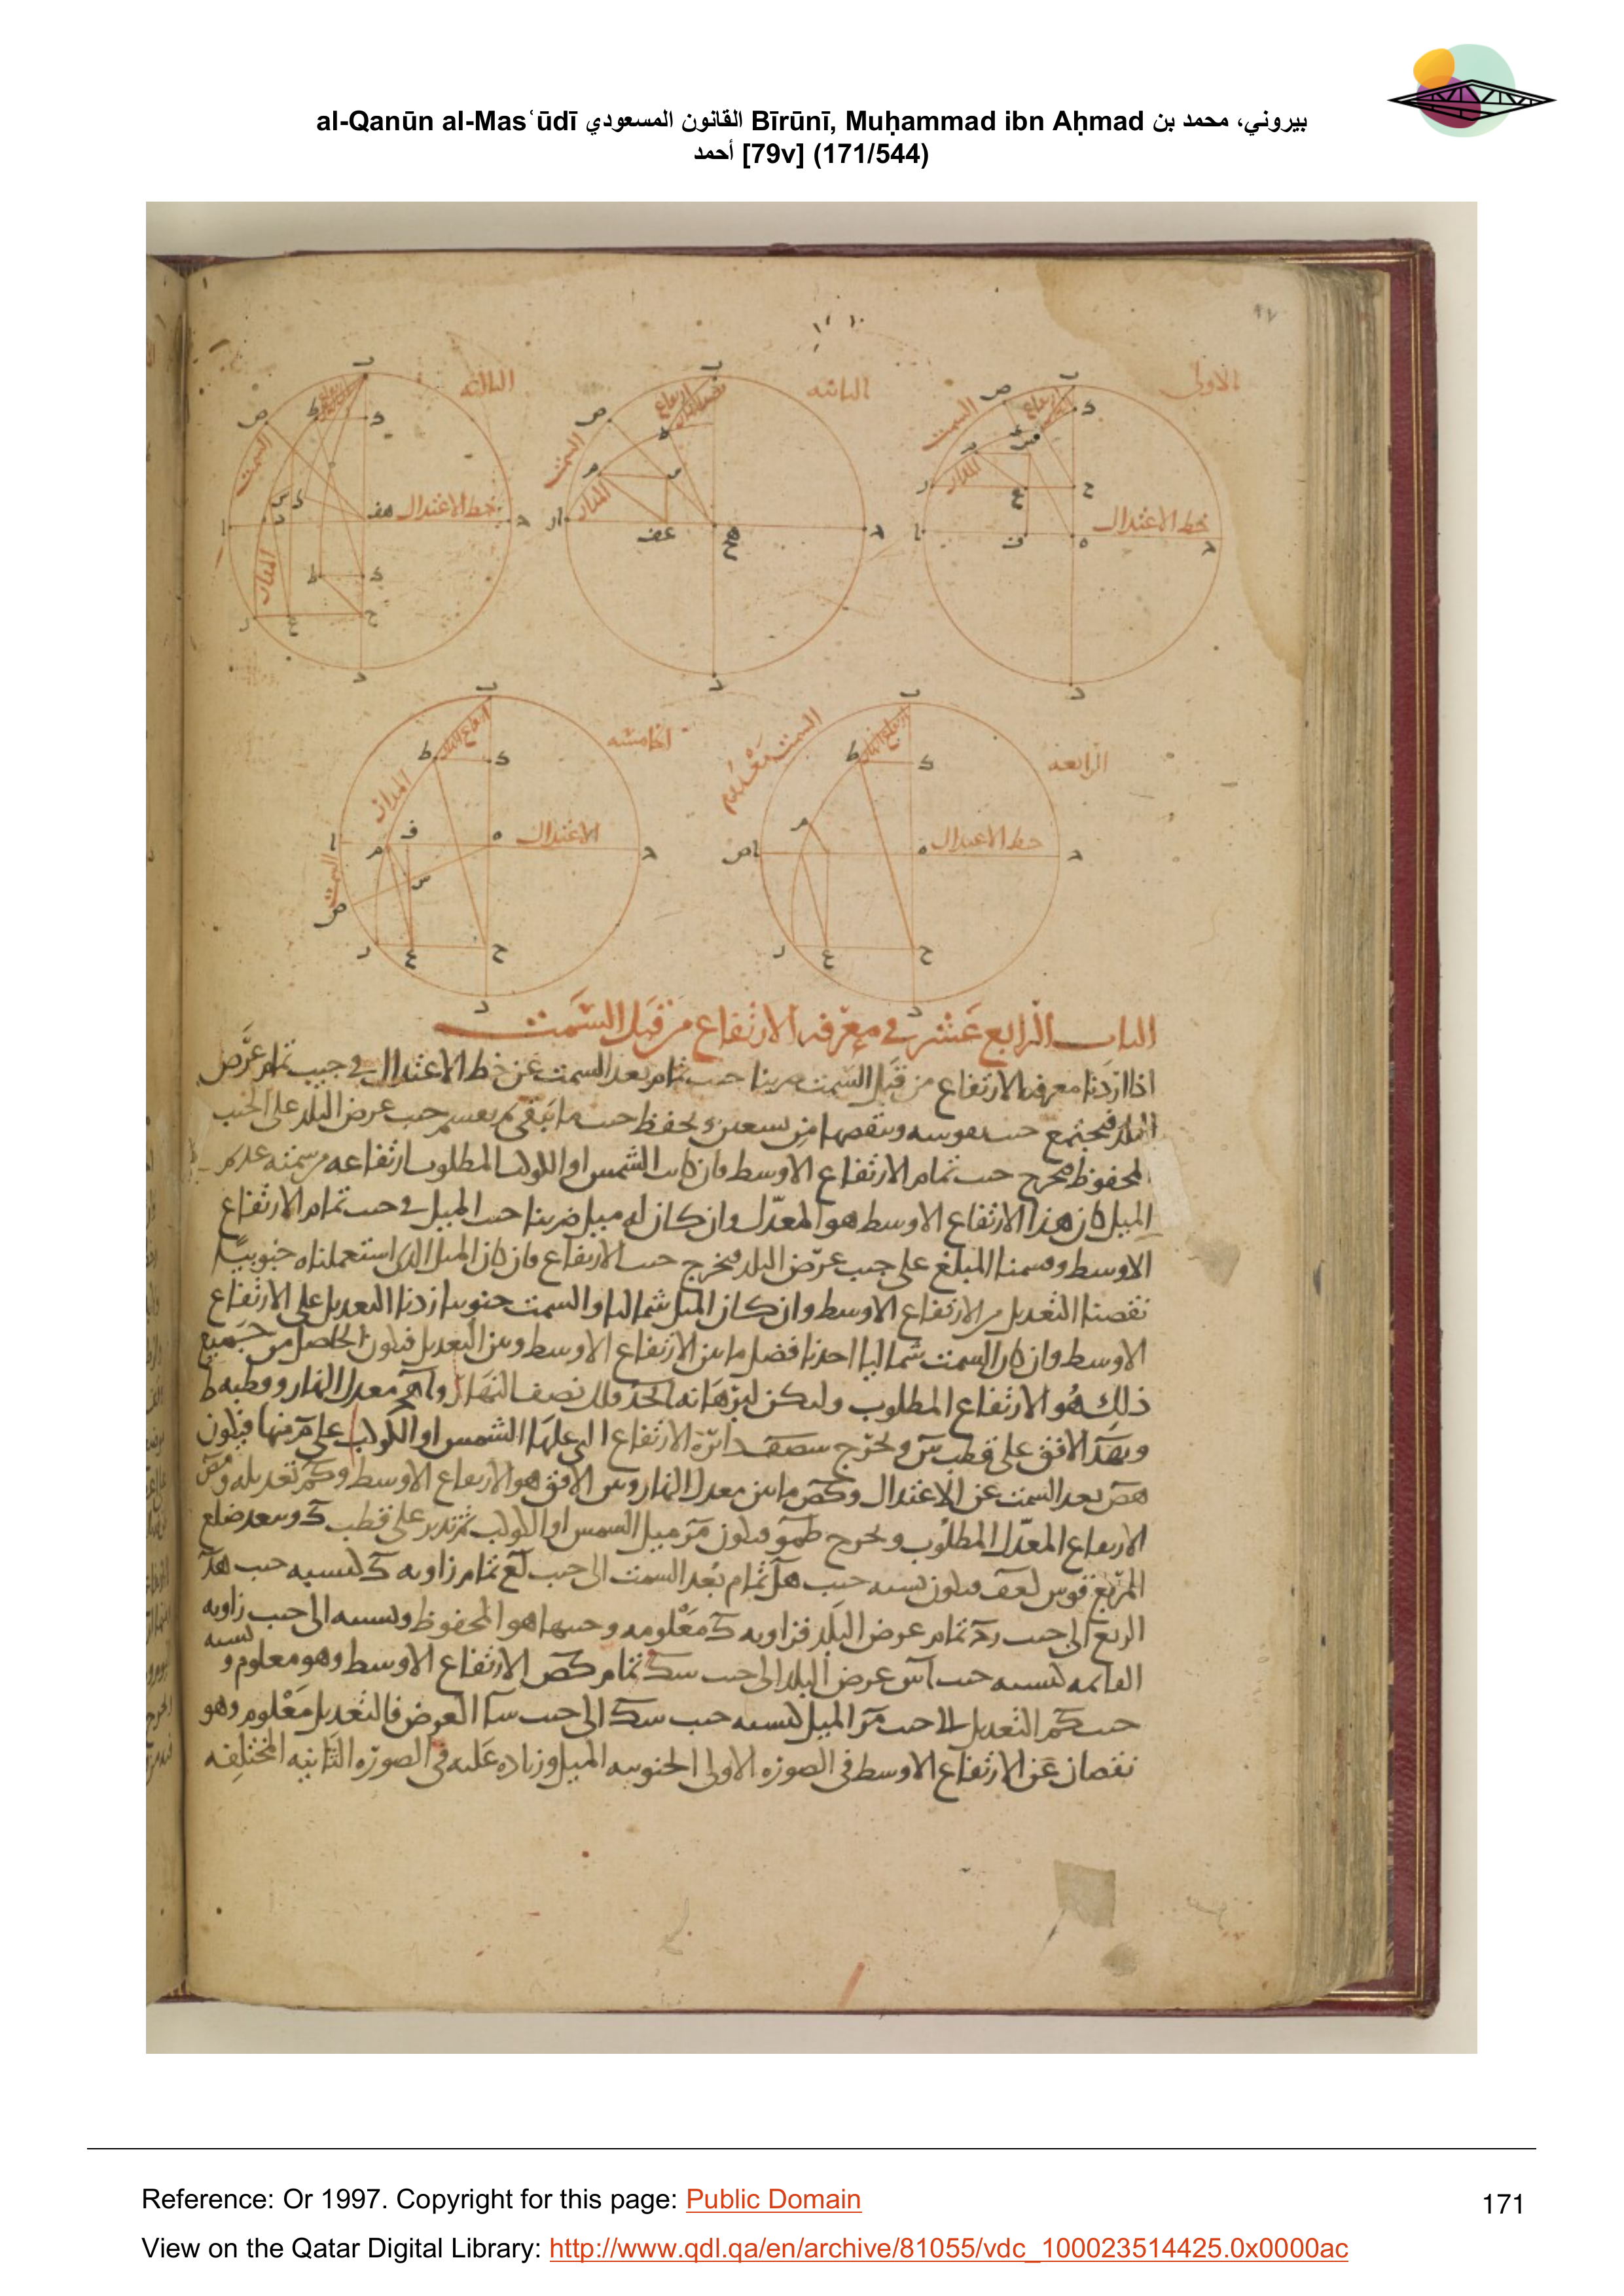 al-Qanūn al-Masʿūdī القانون المسعودي Bīrūnī, Muḥammad ibn Aḥmad بيروني، محمد بن
أحمد [79v] (171/544)
الاولى
الثانيه
الثالثه
السمت
ارتفاع
المدار
خط الاعتدال
السمت
المدار
السمت
المدار
خط الاعتدال
الرابعه
خط الاعتدال
الخامسه
المدار
الاعتدال
السمت
الباب الرابع عشر في معرفه الارتفاع من قبل السمت
اذا اردنا معرفه الارتفاع من قبل السمت ضربنا جيب تمام بعد السمت عن خط الاعتدال في جيب تمام عرض
البلد فيجتمع جيب نقوسه وننقصها من تسعين ونحفظ جيب ما يبقى ثم نقسم جيب عرض البلد على الجيب
المحفوظ فيخرج جيب تمام الارتفاع الاوسط فان كانت الشمس او الكوكب المطلوب ارتفاعه من سمته عديم
الميل كان هذا الارتفاع الاوسط هو المعدل وان كان له ميل ضربنا جيب الميل في جيب تمام الارتفاع
الاوسط وقسمنا المبلغ على جيب عرض البلد فيخرج جيب الارتفاع فان كان الميل الذي استعملناه جنوبيا
نقصنا التعديل من الارتفاع الاوسط وان كان الميل شماليا والسمت جنوبيا زدنا التعديل على الارتفاع
الاوسط وان كان السمت شماليا اخذنا فضل ما بين الارتفاع الاوسط وبين التعديل فيكون الحاصل من جميع
ذلك هو الارتفاع المطلوب وليكن لبرهانه ابجد فلك نصف النهار و معدل النهار وقطبه ط
وبهد الافق على قطب س ونخرج سصف دائرة الارتفاع التي عليها الشمس او الكوكب على م منها فيكون
هص بعد السمت عن الاعتدال وكص ما بين معدل النهار وبين الافق هو الارتفاع الاوسط وكم تعديله ومص
الارتفاع المعدل المطلوب ونخرج طمو فيكون مر ميل الشمس او الكوكب ثم ندير على قطب ك وببعد ضلع
المربع قوس لعف فيكون نسبه جيب هل تمام بعد السمت الى جيب لع تمام زاويه ك كنسبه جيب هد
الربع الى جيب رد تمام عرض البلد فزاويه ك معلومه وجيبها هو المحفوظ ونسبته الى جيب زاويه
القائمه كنسبه جيب اس عرض البلد الى جيب سك تمام كص الارتفاع الاوسط وهو معلوم ونسبه
جيب كم التعديل الى جيب مر الميل كنسبه جيب سك الى جيب سا العرض فالتعديل معلوم وهو
نقصان عن الارتفاع الاوسط في الصوره الاولى الجنوبيه الميل وزياده عليه في الصوره الثانيه المختلفه
Reference: Or 1997. Copyright for this page: Public Domain
171
View on the Qatar Digital Library: http://www.qdl.qa/en/archive/81055/vdc_100023514425.0x0000ac